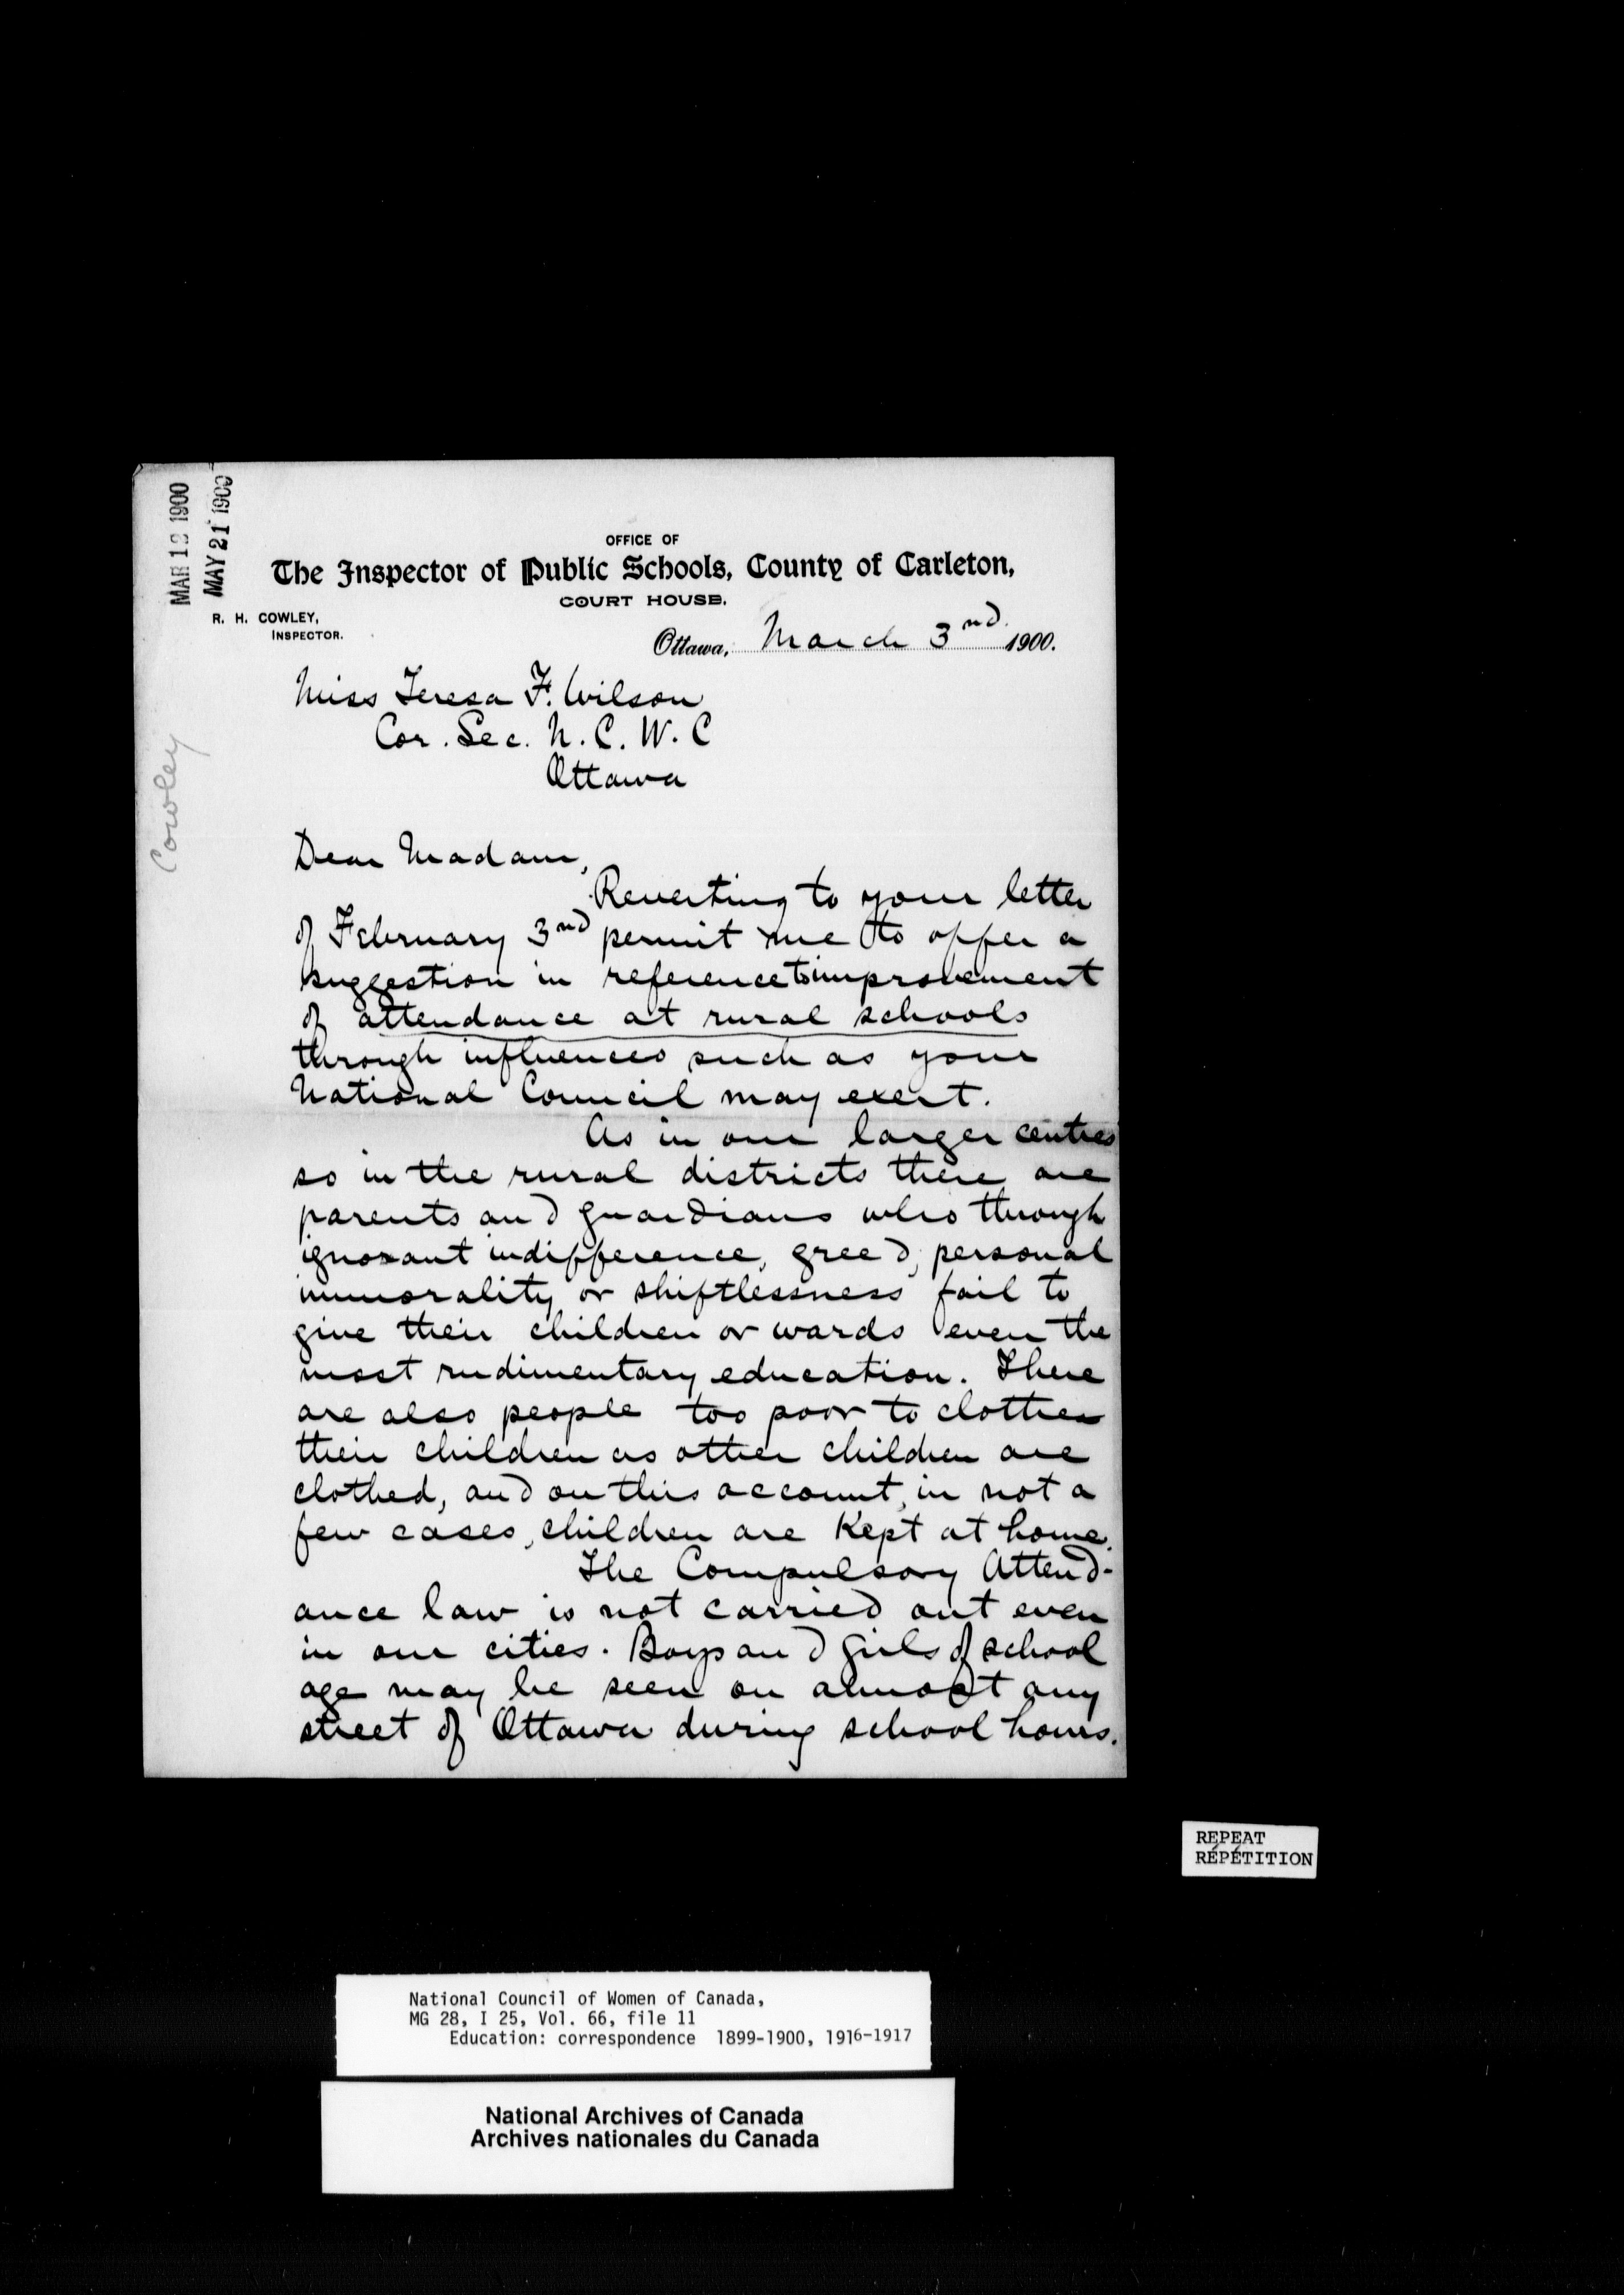 MAR 1 1900
MAY 21 1900
OFFICE OF
The Inspector of Public Schools, County of Carleton,
COURT HOUSE.
R. H. COWLEY,
INSPECTOR.
Ottawa, March 3nd 1900.
Miss Teresa F. Wilson
Cor. Sec. N. C. W. C
Ottawa
Cowley
Dear Madam,
Reverting to your letter
of February 3nd permit me to offer a
suggestion in reference to improvement
of attendance at rural schools
through influences such as your
National Council may exert.
As in our larger centres
so in the rural districts there are
parents and guardians who through
ignorant indifference, greed, personal
immorality or shiftlessness fail to
give their children or wards even the
most rudimentary education. There
are also people too poor to clothe
their children as other children are
clothed, and on this account, in not a
few cases, children are kept at home.
The Compulsory Attend-
ance law is not carried out even
in our cities. Boys and girls of school
age may be seen on almost any
street of Ottawa during school hours.
REPEAT
RÉPÉTITION
National Council of Women of Canada,
MG 28, I 25, Vol. 66, file 11
Education: correspondence 1899-1900, 1916-1917
National Archives of Canada
Archives nationales du Canada